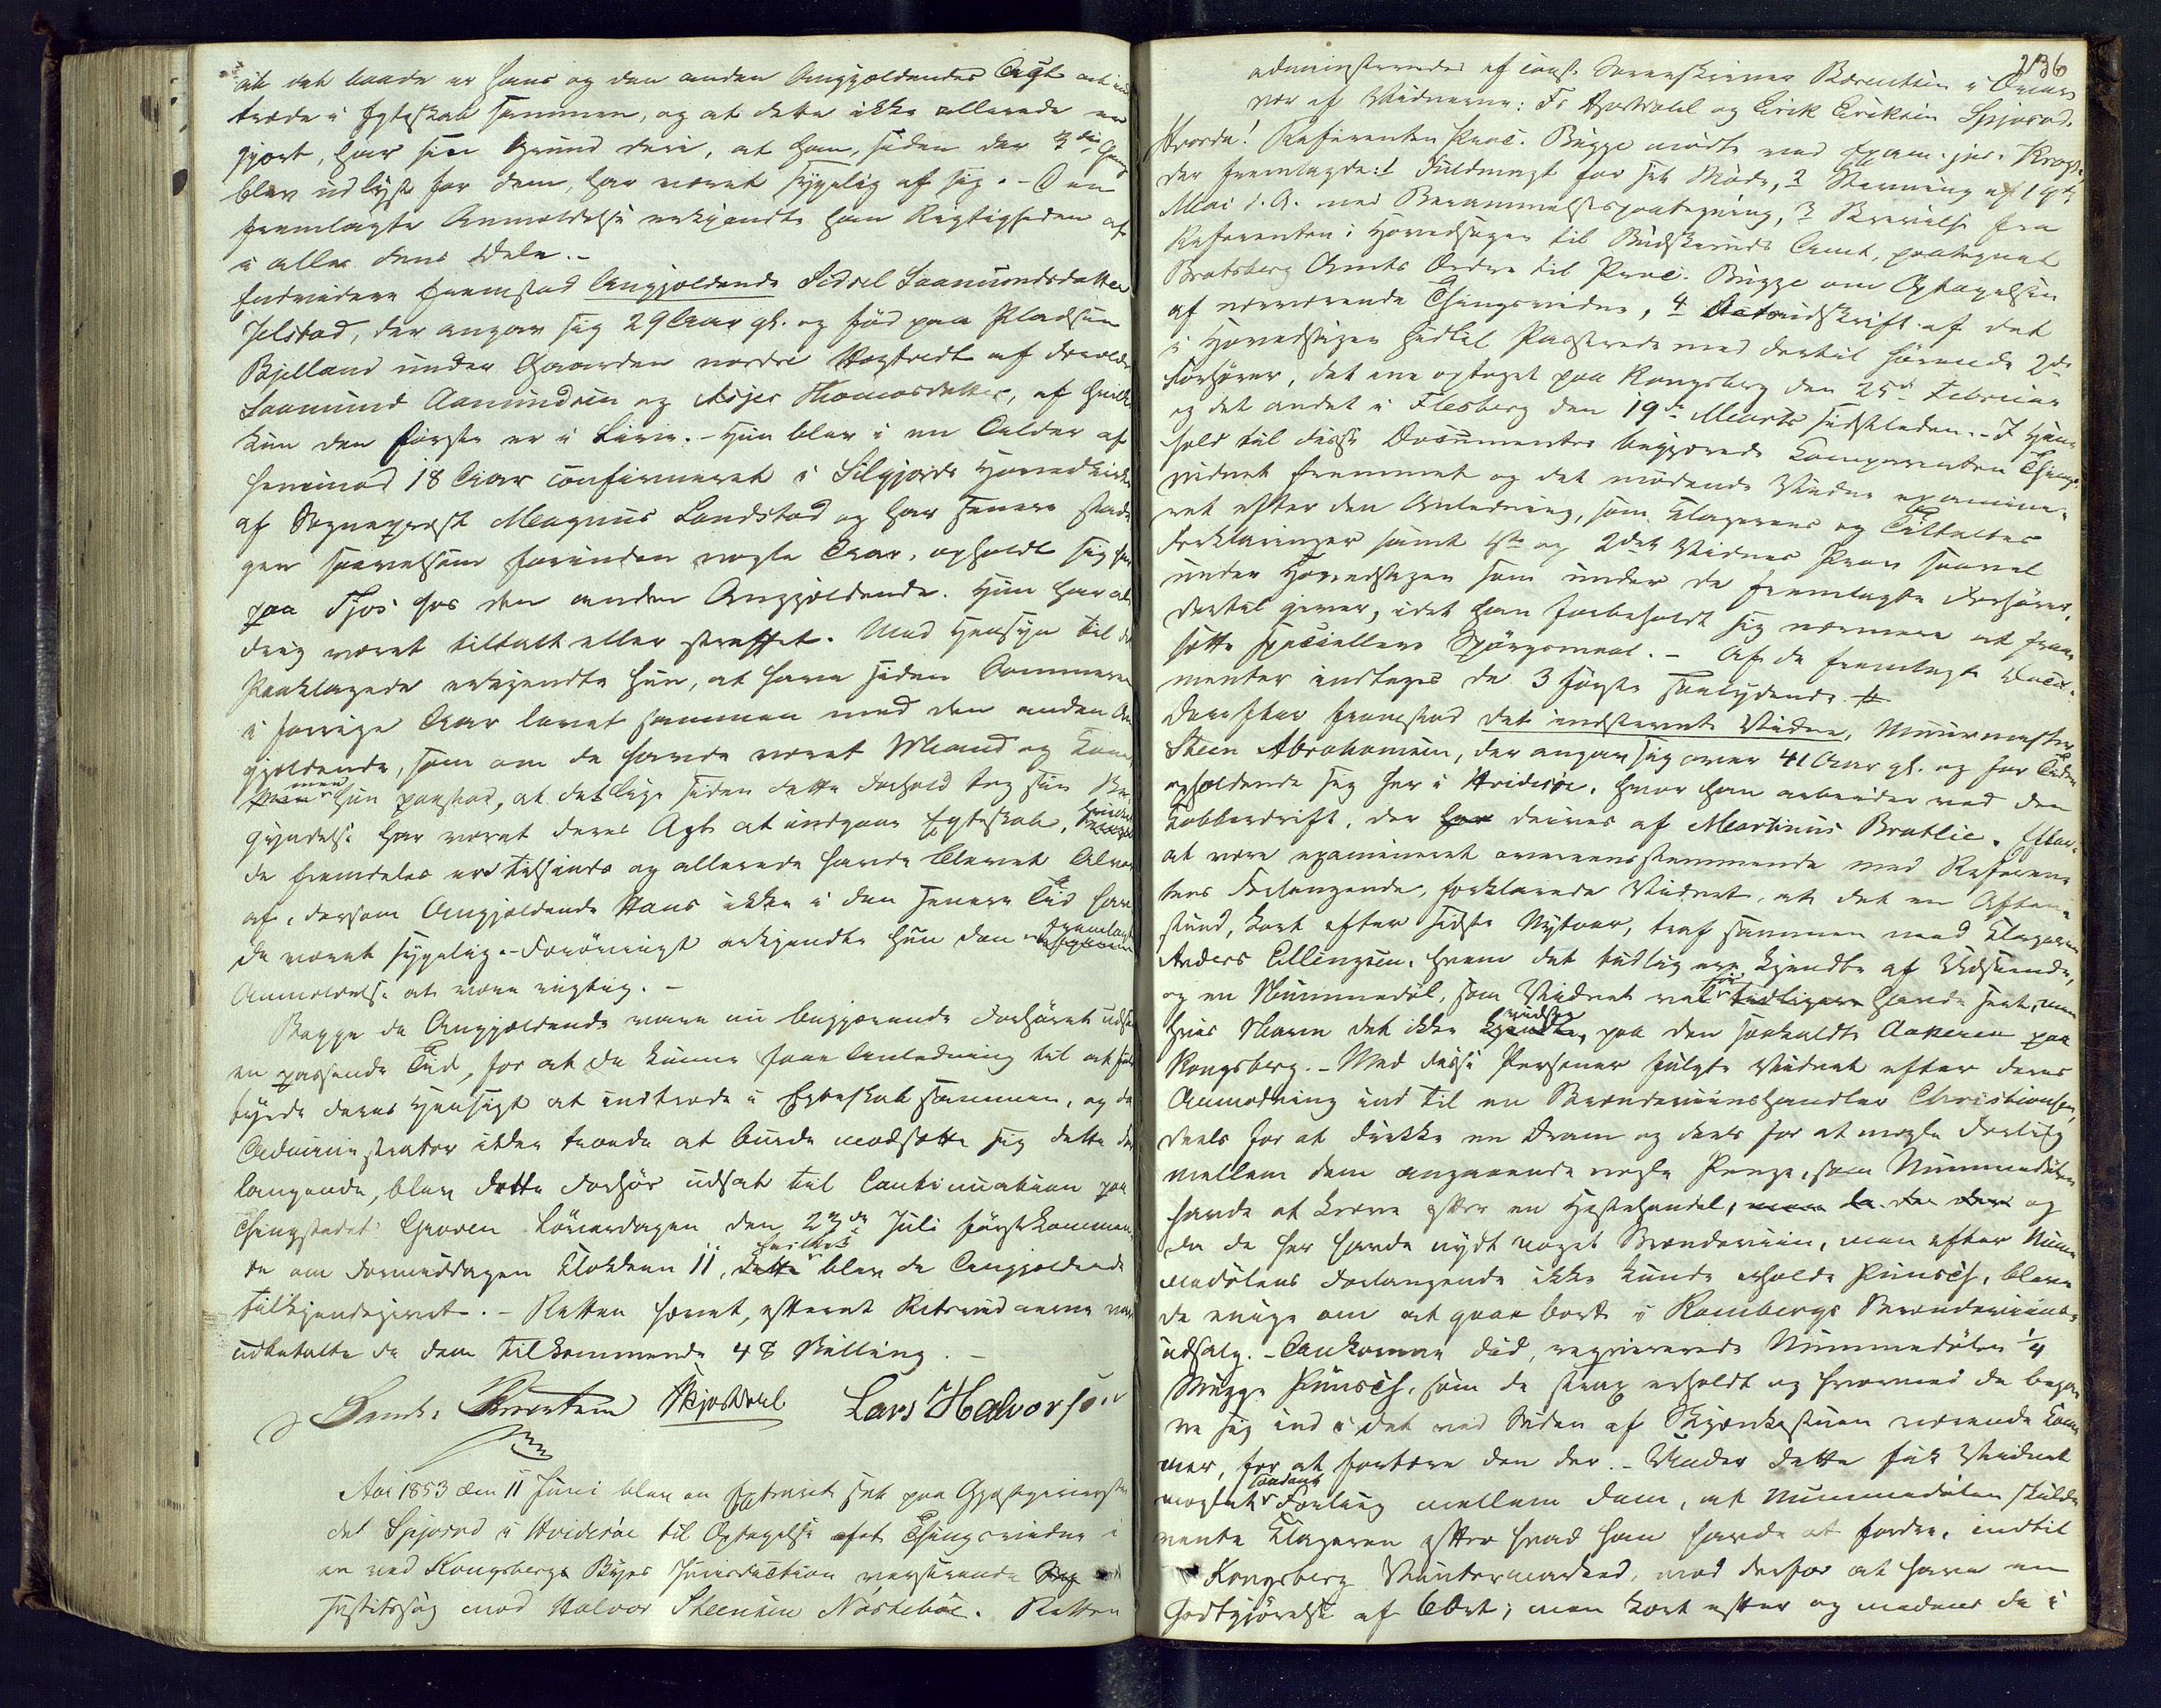 at det baade er hans og den anden Angjældendes Agt at ind
træde i Egteskab sammen, og at dette ikke allerede er
gjort, har sin Grund deri, at han, siden der 3die Gang
blev udlyst for dem, har været sygelig af sig. - Den
fremlagte Anmeldelse erkjendte han Rigtigheden af
i alle dens Dele. -
Endvidere fremstod Angjældende Sidsel Saamundsdatter
Jelstad, der angav sig 29 Aar gl. og fød paa Pladsen
Bjelland under Gaarden nordre Høgtvedt af Forældre
Saamund Aanundsen og Asjer Thomasdatter, af hvilke
kun den første er i Live. - Hun blev i en Alder af
henimod 18 Aar confirmeret i Silgjords Hovedkirke
af Sognepræst Magnus Landstad og har senere stadi
gen saavelsom forinden nogle Aar, opholdt sig her
paa Tjos hos den anden Angjældende. Hun har al
drig været tiltalt eller straffet. Med Hensyn til det
Paaklagede erkjendte hun, at have siden Sommeren
i forrige Aar levet sammen med den anden An
gjældende, som om de havde været Mand og Kone
men hun paastod, at det lige siden dette Forhold tog sin Be
gyndelse har været deres Agt at indgaae Egteskab, hvilket
de fremdeles ere tilsinds og allerede havde blevet Alvor
af, dersom Angjældende Hans ikke i den senere Tid hav
de været sygelig. - Forøvrigt erkjendte hun den fremlagte
Anmeldelse at være rigtig. -
Begge de Angjældende vare nu begjærende Forhøret udsat
en passende Tid, for at de kunne faae Anledning til at fuld
byrde deres Hensigt at indtræde i Egteskab sammen, og da
Administrator ikke troede at burde modsætte sig dette For
langende, blev dette Forhør udsat til Continuation paa
Thingstedet Groven Løverdagen den 23de Juli førstkommen
de om Formiddagen Klokken 11, hvilket blev de Angjældende
tilkjendegivet. - Retten hævet, efterat Retsvidnerne var
udbetalte de dem tilkommende 48 Skilling. -
Lars Halvorsen
Aar 1853 den 11 Juni blev en Extraret sat paa Gjæstgiverste
det Spjosod i Hvidesøe til Optagelse af et Thingsvidne i
en ved Kongsbergs Byes Jurisdiction verserende
Justitssag mod Halvor Steensen Nøstebøe. Retten
236
administreredes af const. Sorenskriver Berentsen i Overs
vær af Vidnerne: Fs Apostolel og Erik Eriksen Spjosod.
Hvorda! Referenten Proc. Bugge mødte ved Exam. jur. Krogh
der fremlagde: 1 Fuldmagt for sit Møde, 2 Stevning af 19de
Mai d. A. med Berammelsespaategning, 3 Skrivelse fra
Referenten i Hovedsagen til Buskeruds Amt, paategnet
Bratsberg Amts Ordre til Proc. Bugge om Optagelsen
af nærværende Thingsvidne, 4 Udskrift af det
i Hovedsagen hidtil Passerede med dertil hørende 2de
Forhører, det ene optaget paa Kongsberg den 25de Februar
og det andet i Flesberg den 19de Marts sidstleden. - I Hen
hold til disse Documenter begjærede Comparenten Things
vidnet fremmet og det mødende Vidne examine-
ret efter den Anledning, som Klagerens og Tiltaltes
Forklaringer samt 1ste og 2det Vidnes Prov saavel
under Hovedsagen som under de fremlagte Forhører,
dertil giver, idet han forbeholdt sig nærmere at frem
sætte speciellere Spørgsmaal. - Af de fremlagte Docu-
menter indtages de 3 første saalydende #
Derefter fremstod det indstevnte Vidne, Muurmester
Steen Abrahamsen, der angav sig over 41 Aar gl. og for Tiden
opholdende sig her i Hvidesøe, hvor han arbeider ved den
Kobberdrift, der drives af Martinus Bratlie. Efter
at være examineret overeensstemmende med Referen
tens Forlangende, forklarede Vidnet, at det en Aften-
stund, kort efter sidste Nytaar, traf sammen med Klageren
Anders Ellingsen, hvem det tidligere kjendte af Udseende,
og en Nummedøl, som Vidnet vel før havde seet, men
hvis Navn det ikke vidste, paa den saakaldte Aakeren paa
Kongsberg. - Med disse Personer fulgte Vidnet efter deres
Anmodning ind til en Brændeviinshandler Christiansen,
deels for at drikke en Dram og deels for at mægle Forlig
mellem dem angaaende nogle Penge, som Nummedølen
havde at kræve efter en Hestehandel, og
da de her havde nydt noget Brændeviin, men efter Num
medølens Forlangende ikke kunde erholde Punsch, bleve
de enige om at gaae bort i Rambergs Brændeviins-
udsalg. - Ankomne did, requirerede Nummedølen 1/4
Mugge Punsch, som de strax erholdt og hvormed de begav
ve sig ind i det ved Siden af Skjænkestuen værende Kam
mer, for at fortære den der. - Under dette fik Vidnet
mæglet saadant Forliig mellem dem, at Nummedølen skulde
vente Klageren efter hvad han havde at fordre, indtil
Kongsberg Vintermarked, mod derfor at have en
Godtgjørelse af 6 Ort; men kort efter og medens de i